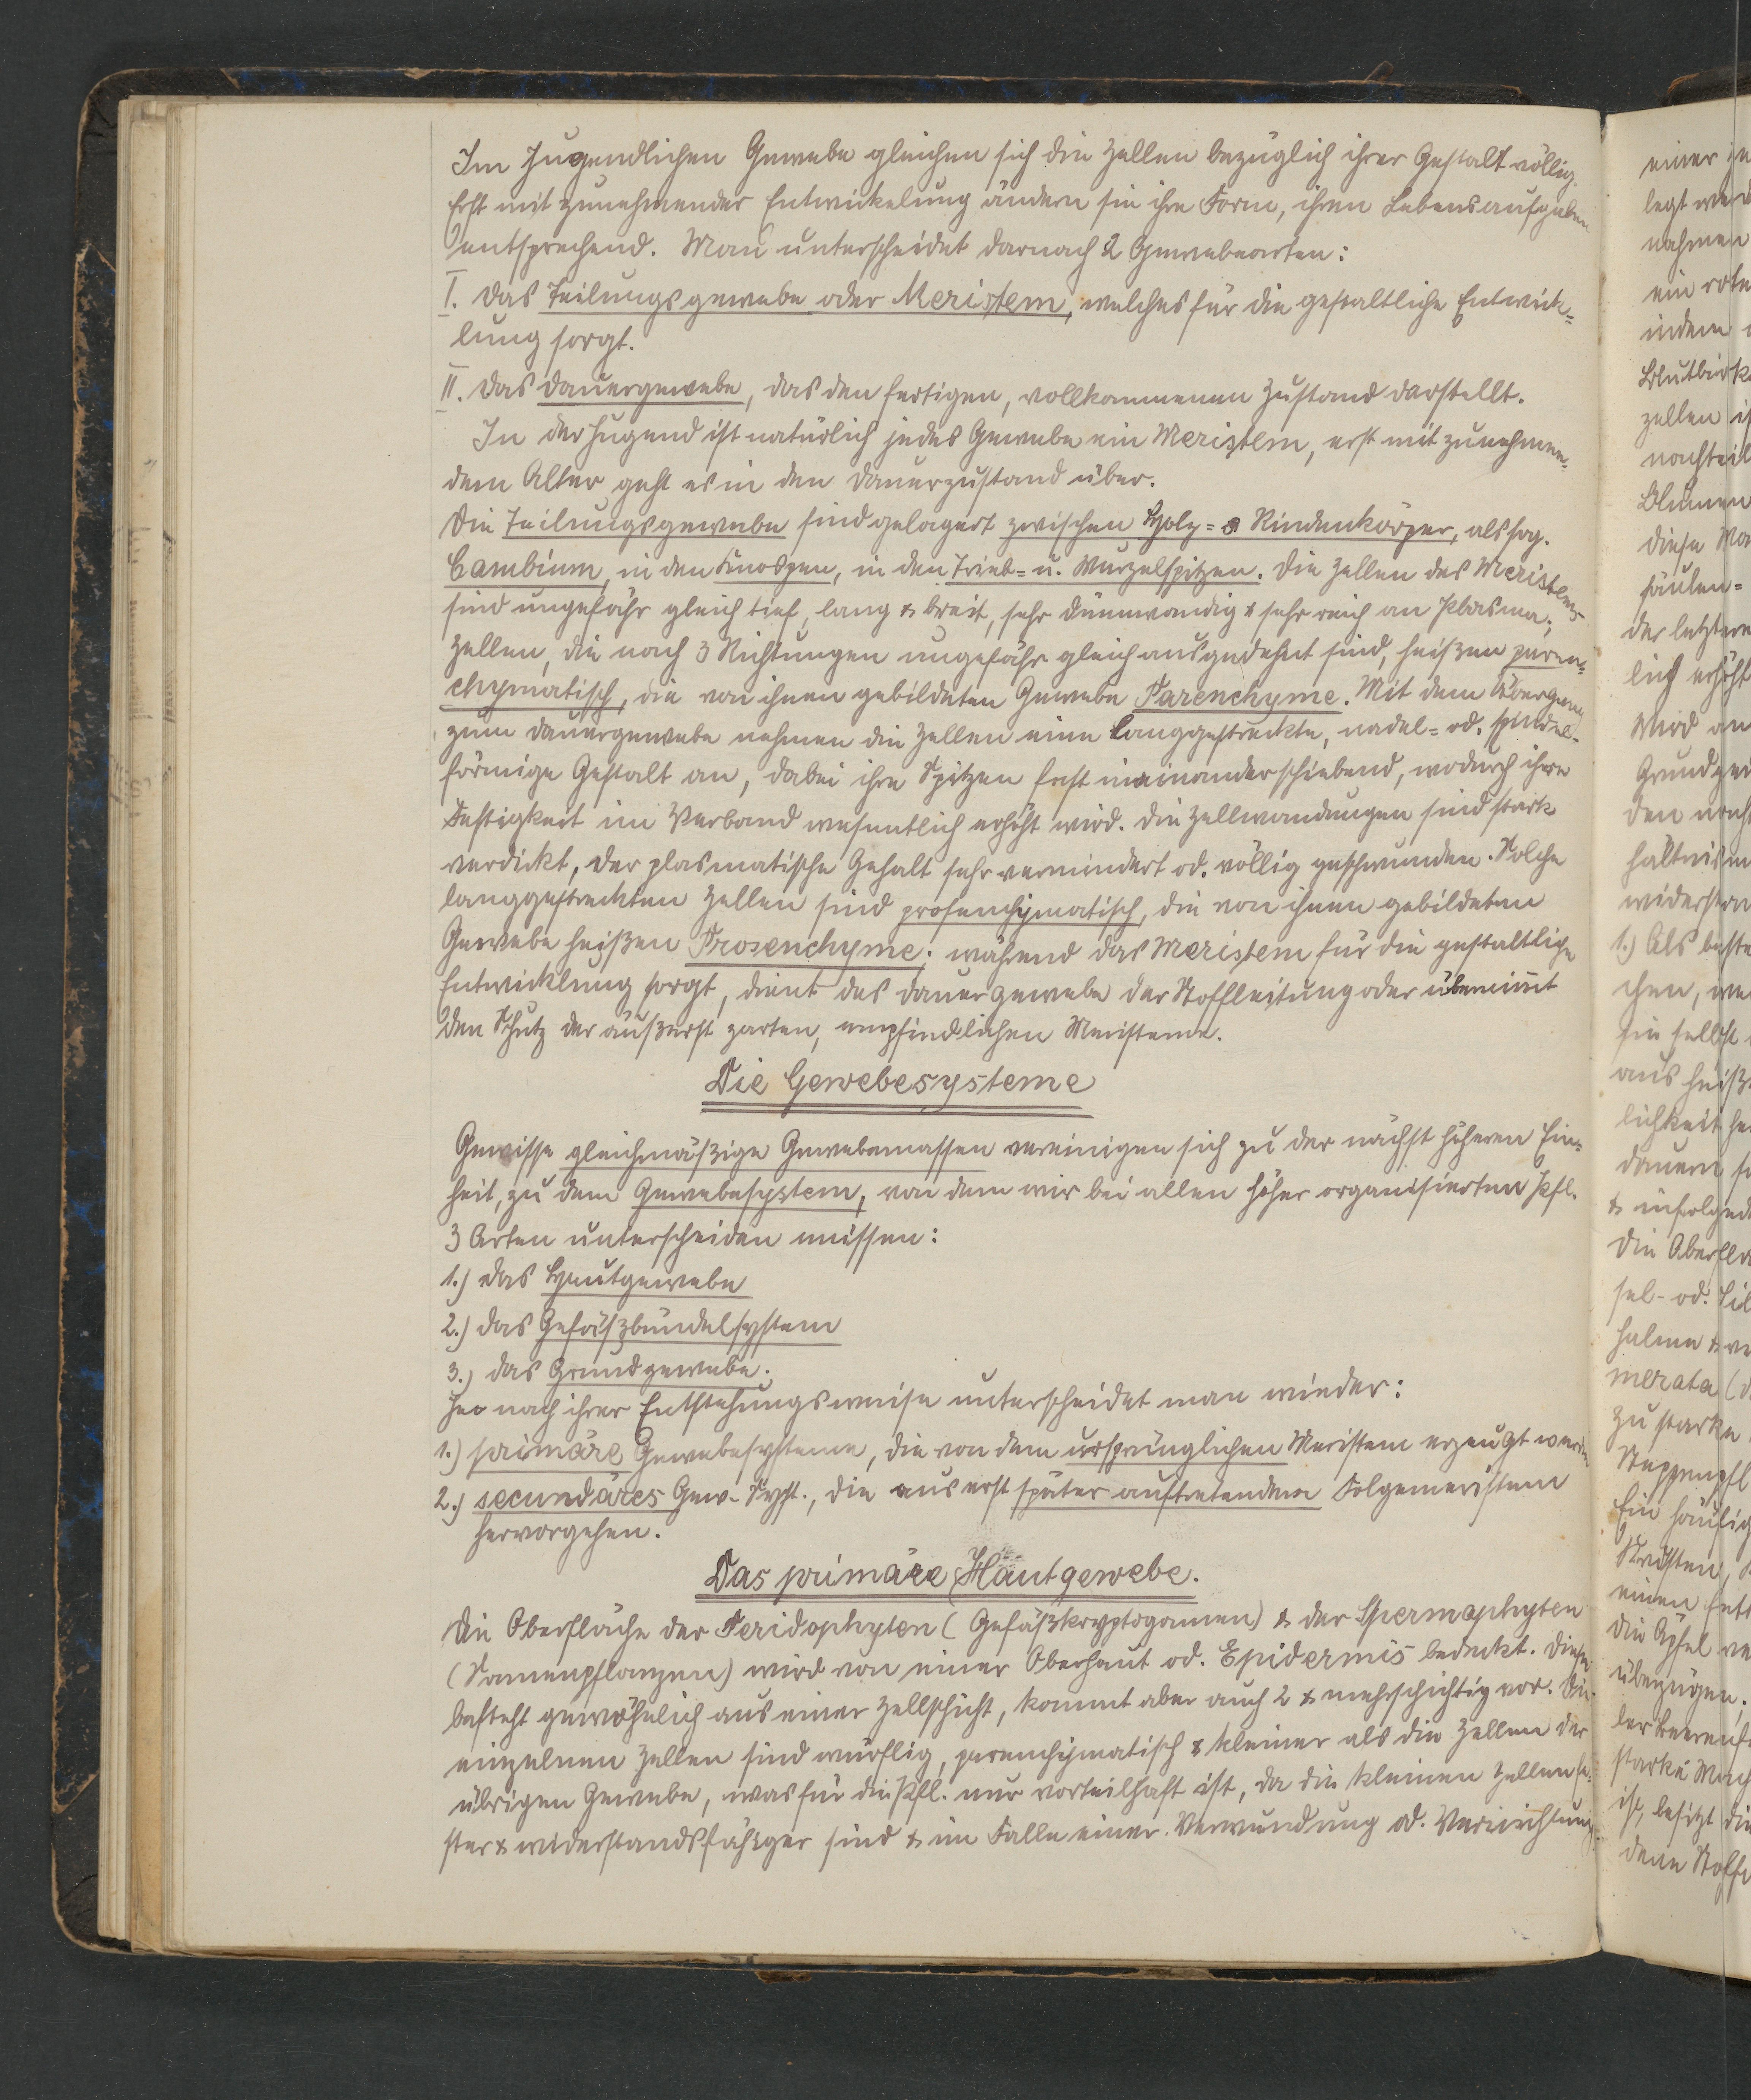 Im Jugendlichen Gewebe gleichen sich die Zellen bezüglich ihrer Gestalt völlig.
Erst mit zunehmender Entwickelung ändern sie ihre Form, ihren Lebensaufgaben
entsprechend. Man unterscheidet darnach 2 Gewebearten:
I. Das Teilungsgewebe oder Meristem, welches für die gestaltliche Entwick=
lung sorgt.
II. Das Dauergewebe, das den fertigen, vollkommenen Zustand darstellt.
In der Jugend ist natürlich jedes Gewebe ein Meristem, erst mit zunehmen=
dem Alter geht es in den Dauerzustand über.
Die Teilungsgewebe sind gelagert zwischen Holz= & Rindenkörper, als sog.
Cambium, in den Knospen, in den Trieb= u. Wurzelspitzen. Die Zellen des Meristems
sind ungefähr gleich tief, lang & breit, sehr dünnwandig & sehr reich an Plasma;
Zellen, die nach 3 Richtungen ungefähr gleich ausgedehnt sind, heißen paren=
chymatisch, die von ihnen gebildeten Gewebe Parenchyme. Mit dem Übergang
zum Dauergewebe nehmen die Zellen eine langgestreckte, nadel= od. spindel-
förmige Gestalt an, dabei ihre Spitzen fest ineinanderschiebend, wodurch ihre
Festigkeit im Verband wesentlich erhöht wird. Die Zellwandungen sind stark
verdickt, der plasmatische Gehalt sehr vermindert od. völlig geschwunden. Solche
langgestreckten Zellen sind prosenchymatisch, die von ihnen gebildeten
Gewebe heißen Prosenchyme; während das Meristem für die gestaltliche
Entwicklung sorgt, dient das Dauergewebe der Stoffleitung oder übernimt
den Schutz der äußerst zarten, empfindlichen Meristeme.
Die Gewebesysteme
Gewisse gleichmäßige Gewebemassen vereinigen sich zu der nächst höheren Ein=
heit, zu dem Gewebesystem, von dem wir bei allen höher organisierten Pfl.
3 Arten unterscheiden müssen:
1.) Das Hautgewebe
2.) das Gefäßbündelsystem
3.) das Grundgewebe.
Je nach ihrer Entstehungsweise unterscheidet man wieder:
1.) primäre Gewebesysteme, die von dem ursprünglichen Meristem erzeugt werden
2.) secundäres Gew.-Syst., die aus erst später auftretendem Folgemeristem
hervorgehen.
Das primäre Hautgewebe.
Die Oberfläche der Teridophyten (Gefäßkryptogamen) & der Spermaphyten
(Samenpflanzen) wird von einer Oberhaut od. Epidermis bedeckt. Diese
besteht gewöhnlich aus einer Zellschicht, kommt aber auch 2 & mehrschichtig vor. Die
einzelnen Zellen sind würflig, parenchymatisch & kleiner als die Zellen der
übrigen Gewebe, was für die Pfl. nur vorteilhaft ist, da die kleinen Zellen fe=
ster & widerstandsfähiger sind & im Falle einer Verwundung od. Vernichtung
einer
legt
nahmen
ein
indem
zellen
nachteil
Blumen
diese
säulen=
der letztere
lich erhöht
Wird an
den
hältnis
1.) Als
chen,
sie selbst
aus
lichkeit
dauern
& infolgede
sel- od.
halme &
merata
zu starke
Steppenpfl
Ein häufig
einen
die Äpfel
überzügen;
starke
ist, besitzt die